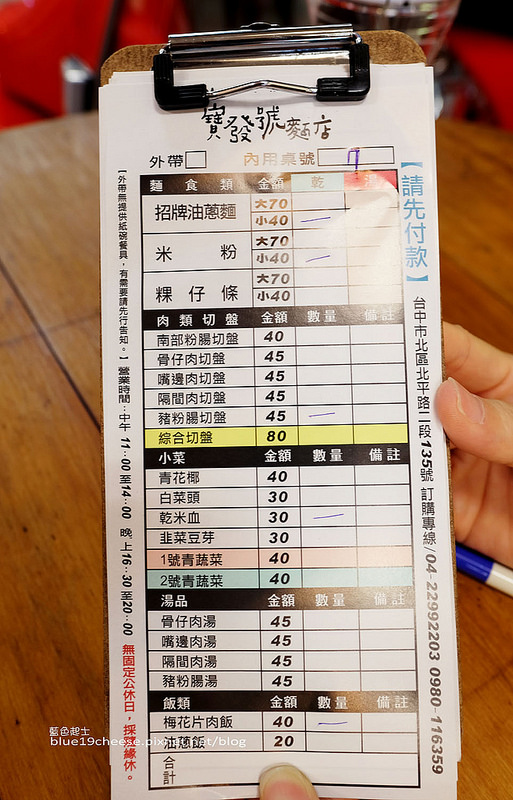 寶發號麵店
外帶 內用桌號 7
麵食類 金額 乾 湯
招牌油蔥麵 大70
小40 一
米粉 大70
小40 一
粿仔條 大70
小40
肉類切盤 金額 數量 備註
南部粉腸切盤 40
骨仔肉切盤 45
嘴邊肉切盤 45
隔間肉切盤 45
豬粉腸切盤 45 一
綜合切盤 80
小菜 金額 數量 備註
青花椰 40
白菜頭 30
乾米血 30 一
韭菜豆芽 30
1號青蔬菜 40
2號青蔬菜 40
湯品 金額 數量 備註
骨仔肉湯 45
嘴邊肉湯 45
隔間肉湯 45
豬粉腸湯 45
飯類 金額 數量 備註
梅花片肉飯 40 一
油蔥飯 20
合計
【請先付款】
台中市北區北平路二段135號 訂購專線/04-22992203 0980-116359
【外帶無提供紙碗餐具，有需要請先行告知。】營業時間：中午 11：00 至14：00 晚上16：30 至20：00 無固定公休日，採緣休。
藍色起士
blue19cheese.pixnet.net/blog